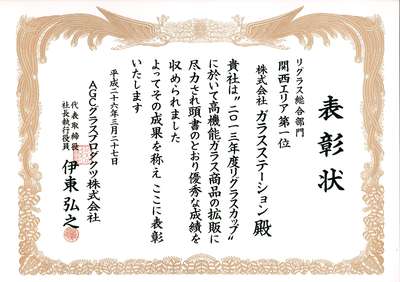 表彰状
リグラス総合部門
関西エリア第一位
株式会社 ガラスステーション 殿
貴社は"二〇一三年度リグラスカップ"
に於いて高機能ガラス商品の拡販に
尽力され頭書のとおり優秀な成績を
収められました
よってその成果を称え ここに表彰
いたします
平成二十六年三月二十七日
AGCグラスプロダクツ株式会社
代表取締役
社長執行役員 伊東弘之